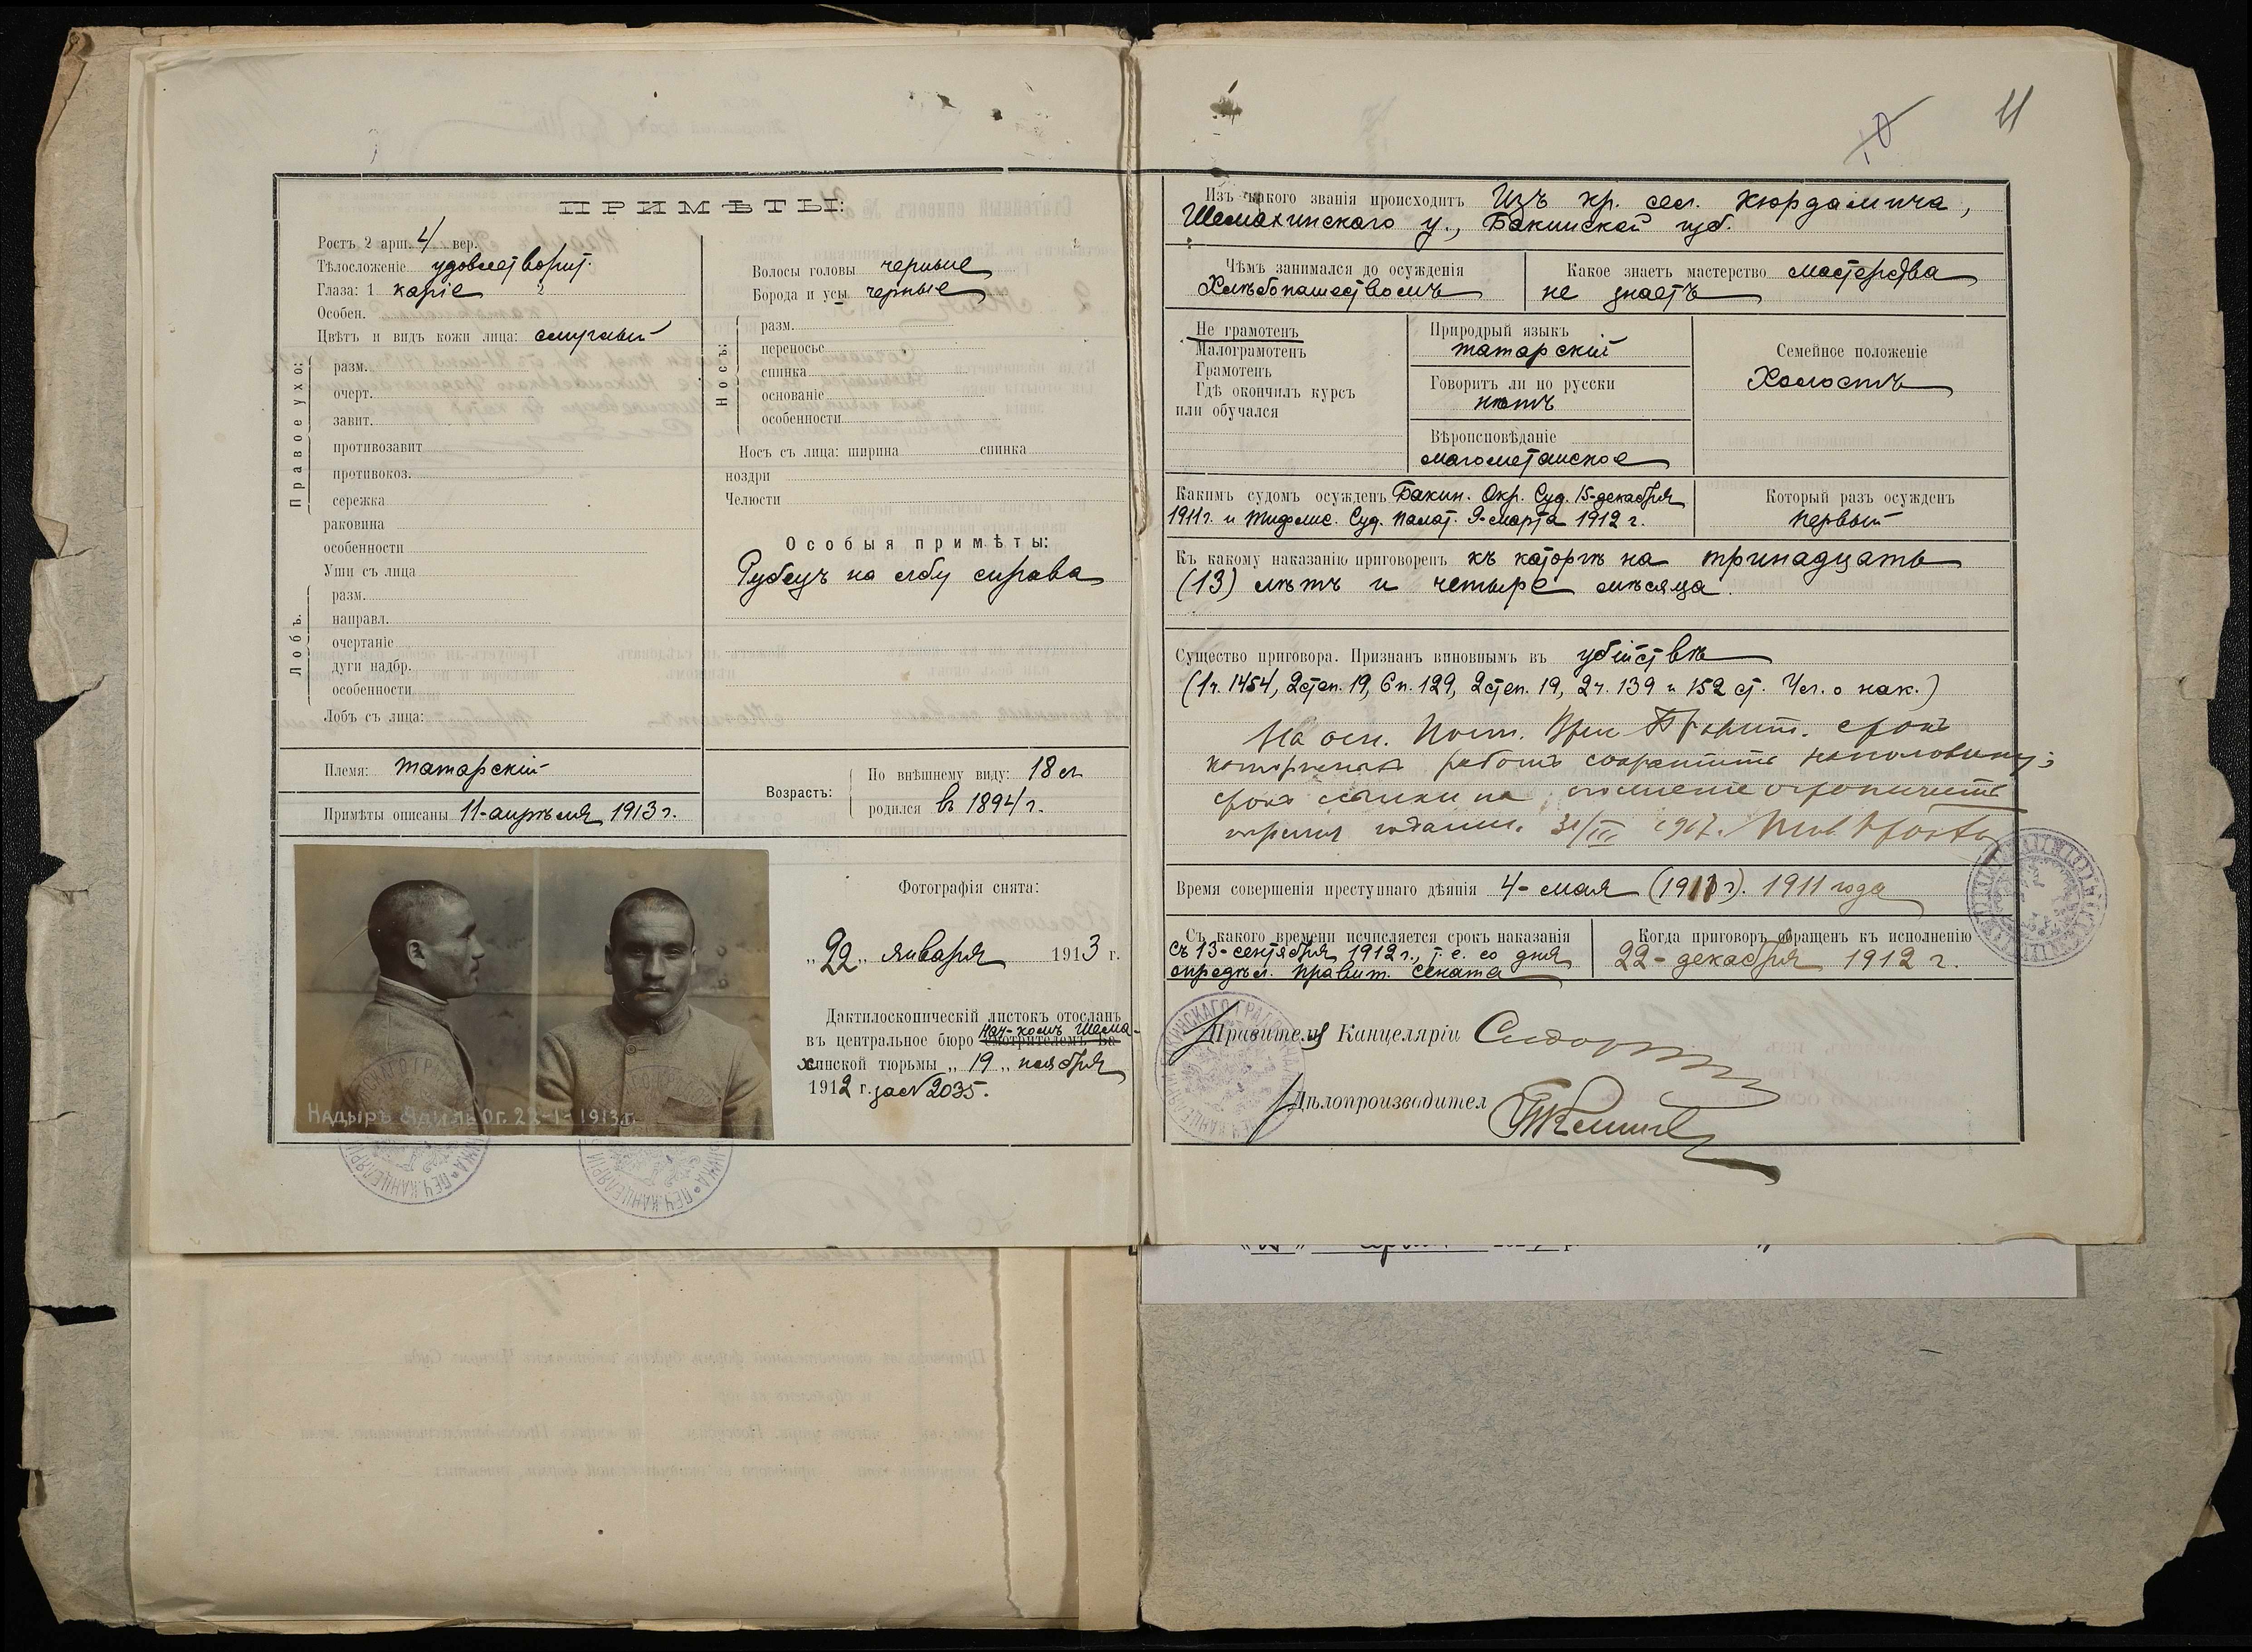 11
10
ПРИМѢТЫ:
Ростъ 2 арш. 4 вер.
Тѣлосложеніе удовлетворит.
Глаза: 1 каріе 2
Особен.
Цвѣтъ и видъ кожи лица: смуглый
Правое ухо:
разм.
очерт.
завит.
противозавит
противокоз.
сережка
раковина
особенности
Уши съ лица
Лобъ.
разм.
направл.
очертаніе
дуги надбр.
особенности
Лобъ съ лица:
Племя: татарскій
Примѣты описаны 11-апрѣля 1913 г.
Волосы головы черные
Борода и усы черные
Носъ:
разм.
переносье
спинка
основаніе
особенности
Носъ съ лица: ширина спинка
ноздри
Челюсти
Особыя примѣты:
Рубецъ на лбу справа
Возрастъ:
По внѣшнему виду: 18 л
родился въ 1894 г.
НАДЫРЪ АДИЛЬ ОГ. 22-1-1913 г.
Фотографія снята:
„22„ января 1913 г.
Дактилоскопическій листокъ отосланъ
Нач-комъ Шема-
въ центральное бюро смотрителемъ Ба-
хинской тюрьмы „19„ ноября
1912 г. за № 2035.
Изъ какого званія происходитъ Изъ кр. сел. Кюрдамича,
Шемахинскаго у., Бакинской губ.
Чѣмъ занимался до осужденія
Хлѣбопашествомъ
Какое знаетъ мастерство мастерства
не знаетъ
Не грамотенъ
Малограмотенъ
Грамотенъ
Гдѣ окончилъ курсъ
или обучался
Природный языкъ
татарскій
Говоритъ ли по русски
нѣтъ
Вѣроисповѣданіе
магометанское
Семейное положеніе
Холостъ
Какимъ судомъ осужденъ Бакин. Окр. Суд. 15-декабря
1911 г. и Тифлис. Суд. Палат. 9-марта 1912 г.
Который разъ осужденъ
первый
Къ какому наказанію приговоренъ къ каторгѣ на тринадцать
(13) лѣтъ и четыре мѣсяца.
Существо приговора. Признанъ виновнымъ въ убійствѣ
(1 ч. 1454, 2 степ. 19, 6 п. 129, 2 степ. 19, 2 ч. 139 и 152 ст. Ул. о нак.)
На осн. Пост. Врем. Правит. срокъ
каторжныхъ работъ сократить наполовину;
срокъ ссылки на поселеніе ограничить
тремя годами. 31/III 1917.
Время совершенія преступнаго дѣянія 4-мая (1911 г). 1911 года
Съ какого времени исчисляется срокъ наказанія
съ 13-сентября 1912 г., т. е. со дня
опредѣл. Правит. Сената
Когда приговоръ обращенъ къ исполненію
22-декабря 1912 г.
Правитель Канцеляріи
Дѣлопроизводител